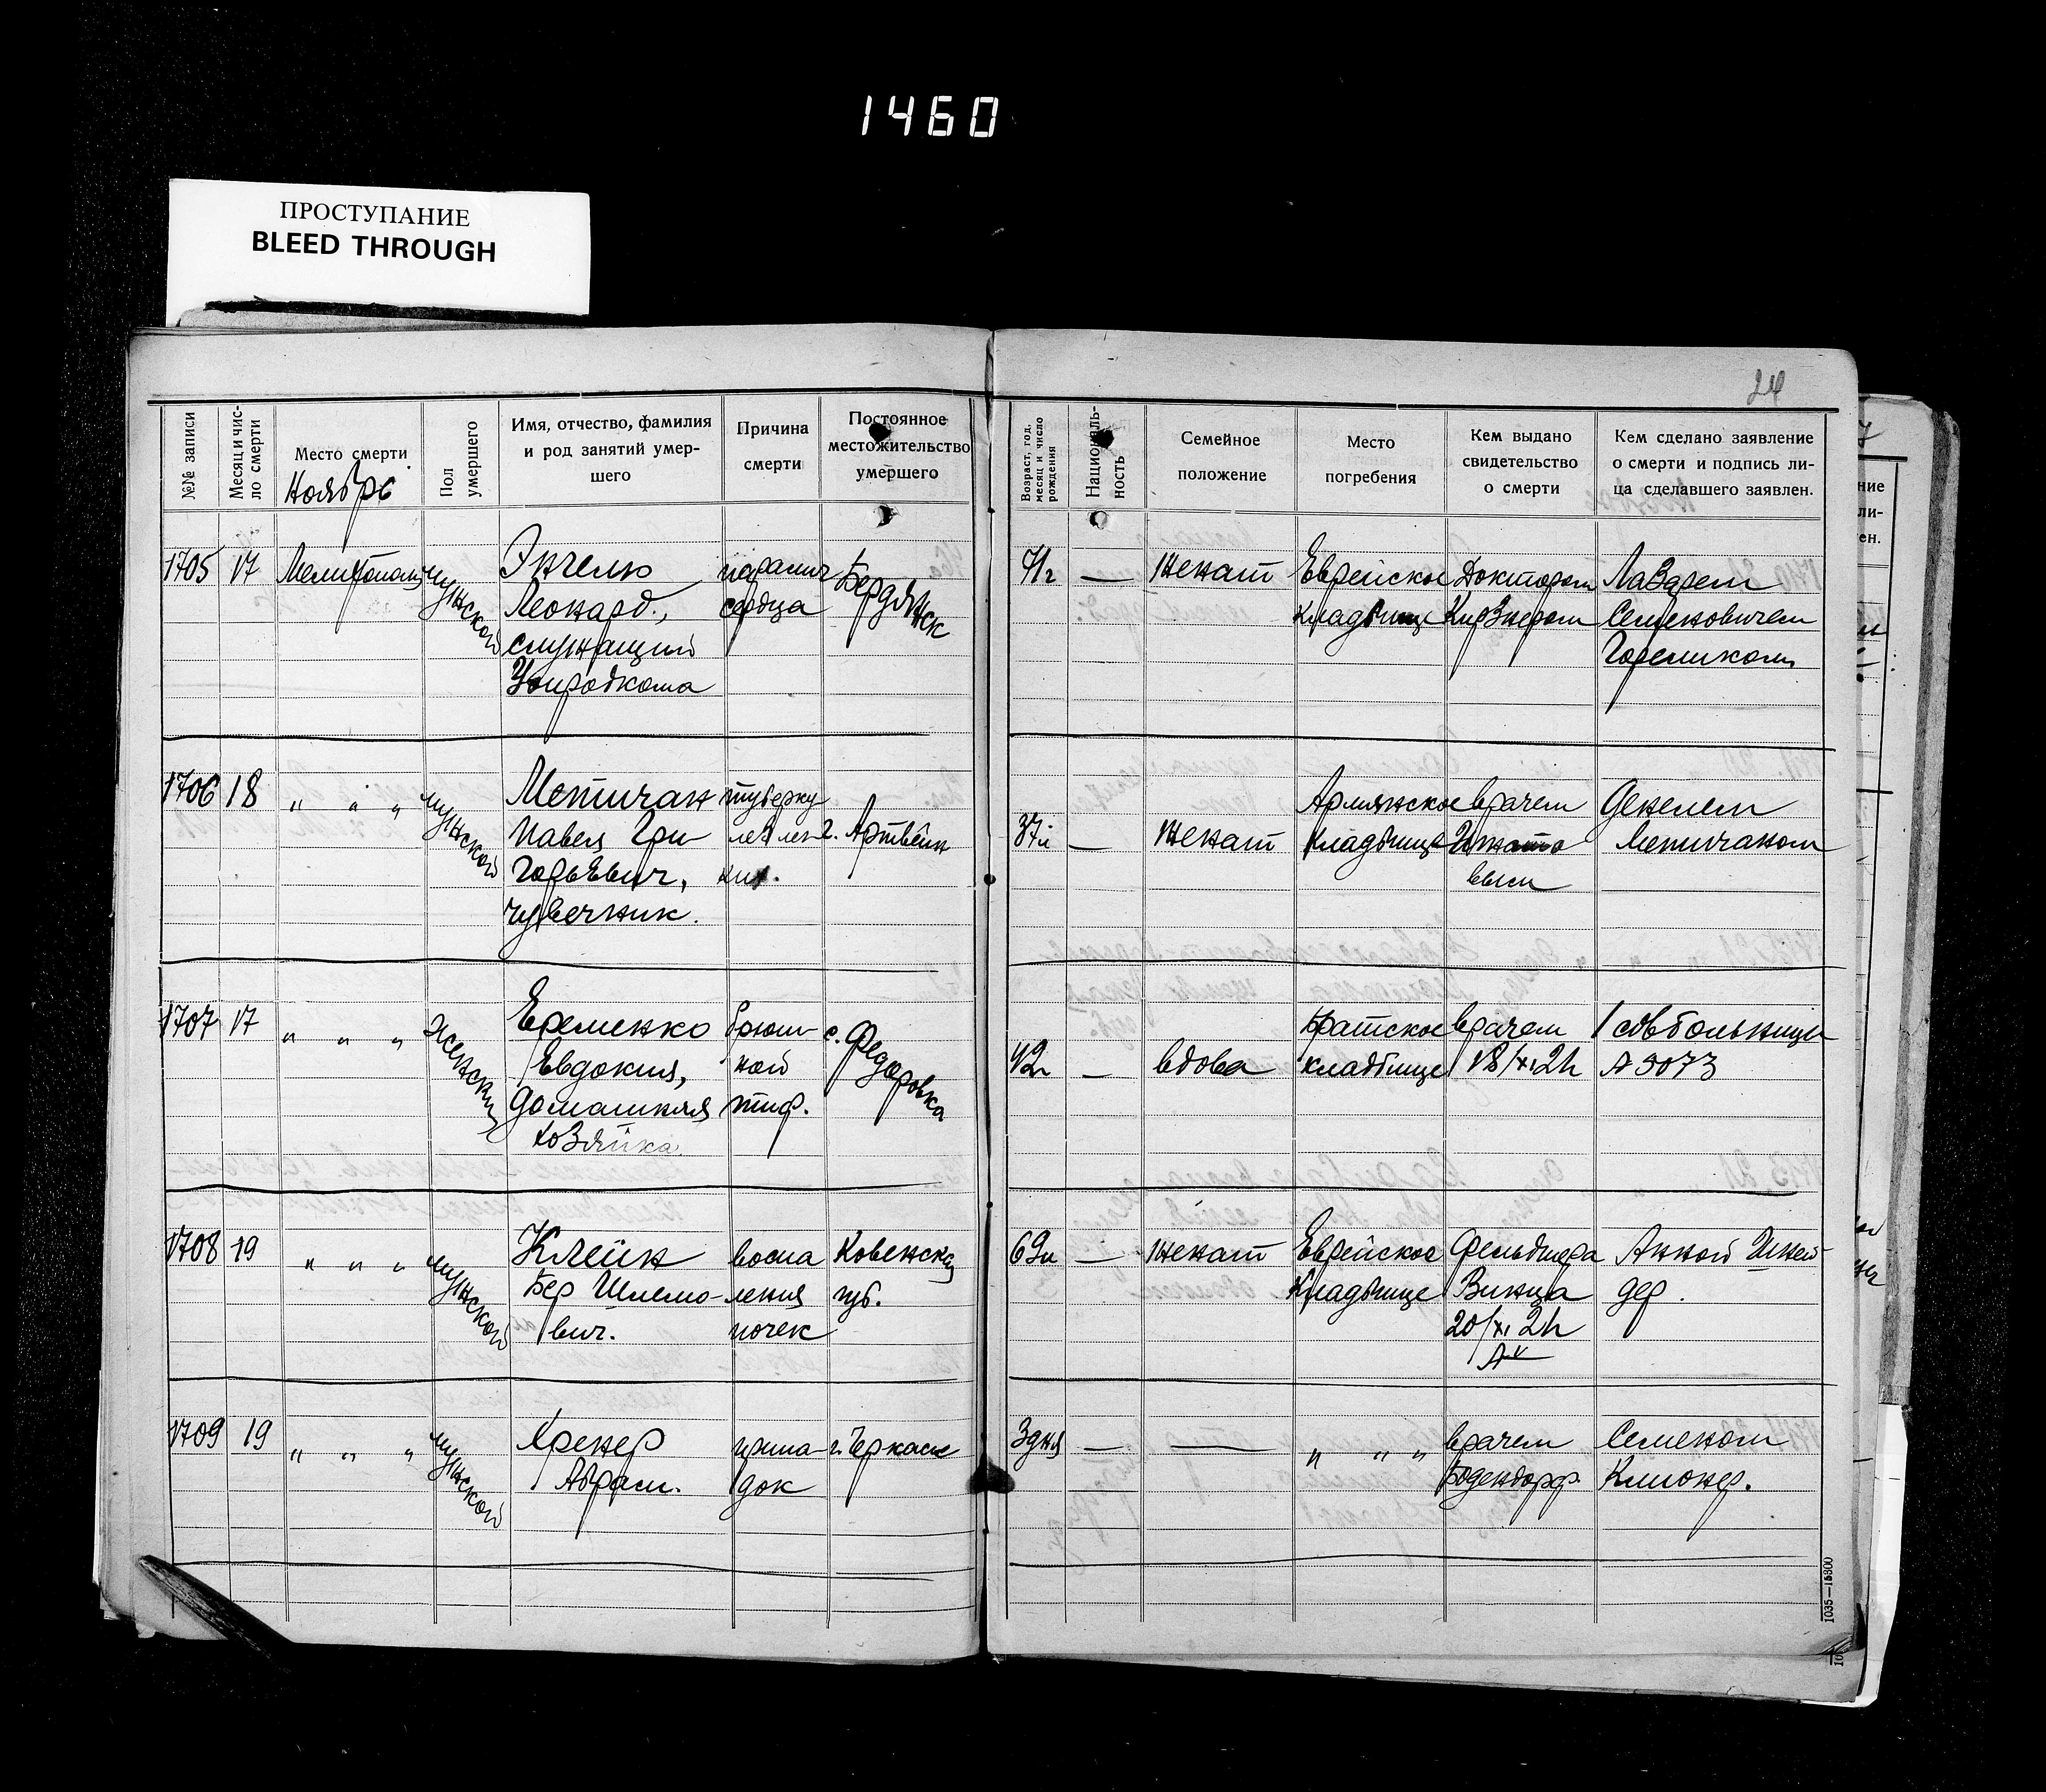 1460
ПРОСТУПАНИЕ
BLEED THROUGH
24
№№ записи
Месяц и чис-
ло смерти
Место смерти
Ноябрь
Пол
умершего
Имя, отчество, фамилия
и род занятий умер-
шего
Причина
смерти
Постоянное
местожительство
умершего
Возраст, год,
месяц и число
рождения
Националь-
ность
Семейное
положение
Место
погребения
Кем выдано
свидетельство
о смерти
Кем сделано заявление
о смерти и подпись ли-
ца сделавшего заявлен.
1705 17 Мелитополь мужской
Леонард,
служащий
паралич
сердца
Бердянск
— женат
Еврейское
кладбище
Доктором
Лазарем
Семеновичем
Гореликом
1706 18 " " " мужской
Метичан
Павел Гри
горьевич,
чувечник.
туберку
лез лег
ких.
г. Артвин
37л — женат
Армянское
кладбище
врачем
Метичаном
1707 17 " " " женский
Еременко
Евдокия,
домашняя
хозяйка.
брюш-
ной
тиф.
с. Федоровка
42л — вдова
Братское
кладбище
врачем
18/XI 2h
1 совбольницы
№ 5073
1708 19 " " " мужской
Клейн
Бер Шлемо-
вич.
воспа
ления
почек
Ковенская
губ.
69л — женат
Еврейское
кладбище
фельдшера
20/XI 2h
Анной Шней
дер.
1709 19 " " " мужской
Кренер
Абрам.
припа-
док
г. Черкасы
3 дня — — " " "
врачем
Бодендорф.
Семеном
1035—15800